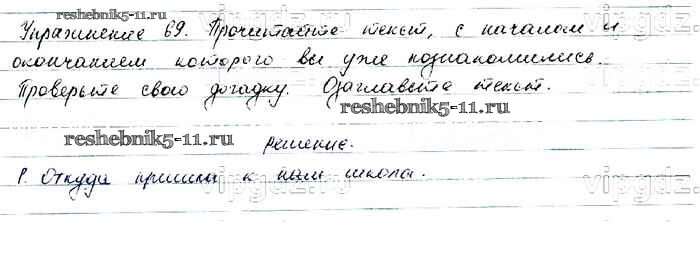 reshebnik5-11.ru
Упражнение 69. Прочитайте текст, с началом и
окончанием которого вы уже познакомились.
Проверьте свою догадку. Озаглавьте текст.
reshebnik5-11.ru
reshebnik5-11.ru
Решение.
1. Откуда пришла к нам школа.
vipgdz.ru
vipgdz.ru
vipgdz.ru
vipgdz.ru